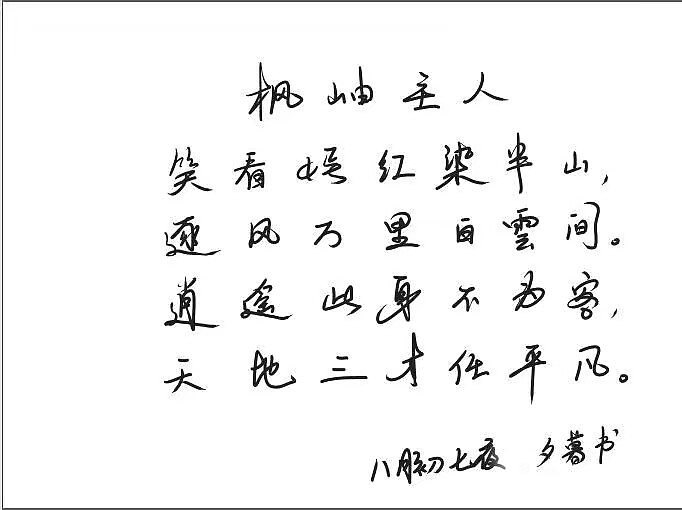 枫岫主人
笑看嫣红染半山，
逐风万里白雲间。
逍遥此身不为客，
天地三才任平凡。
八月初七夜 夕暮书